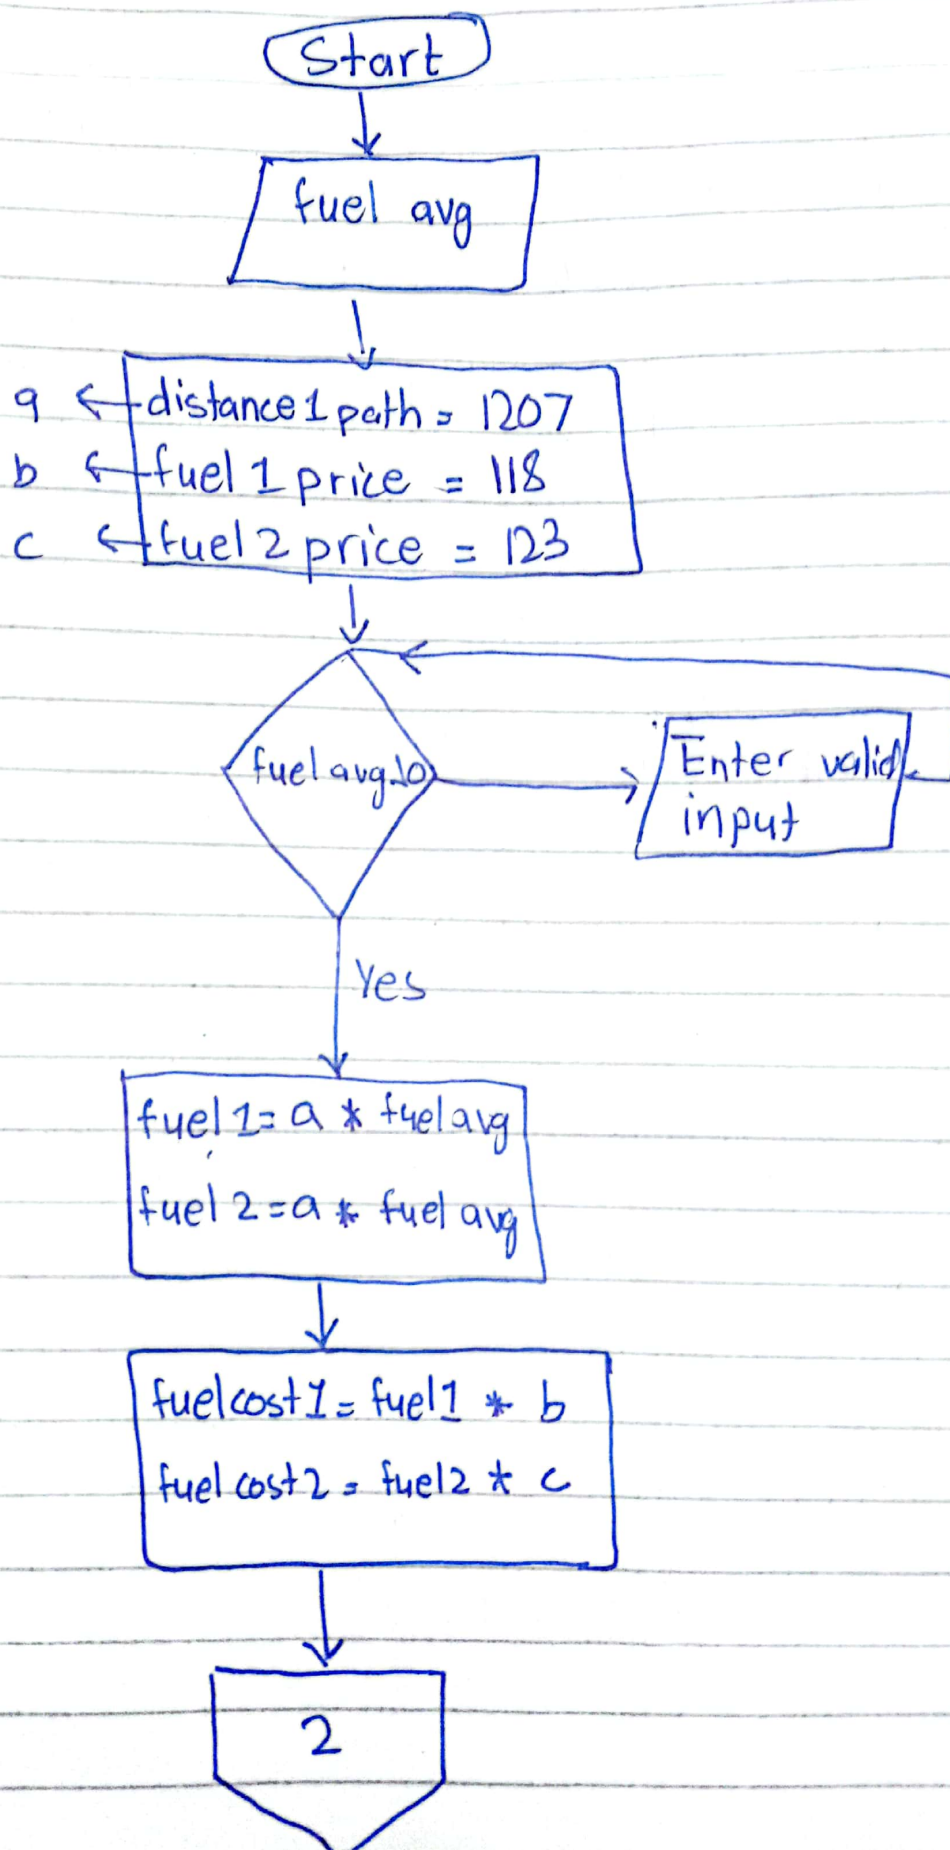 Start
fuel avg
a distance 1 path = 1207
b fuel 1 price = 118
c fuel 2 price = 123
fuel avg
Enter valid
input
Yes
fuel 1 = a * fuel avg
fuel 2 = a * fuel avg
fuel cost 1 = fuel 1 * b
fuel cost 2 = fuel 2 * c
2